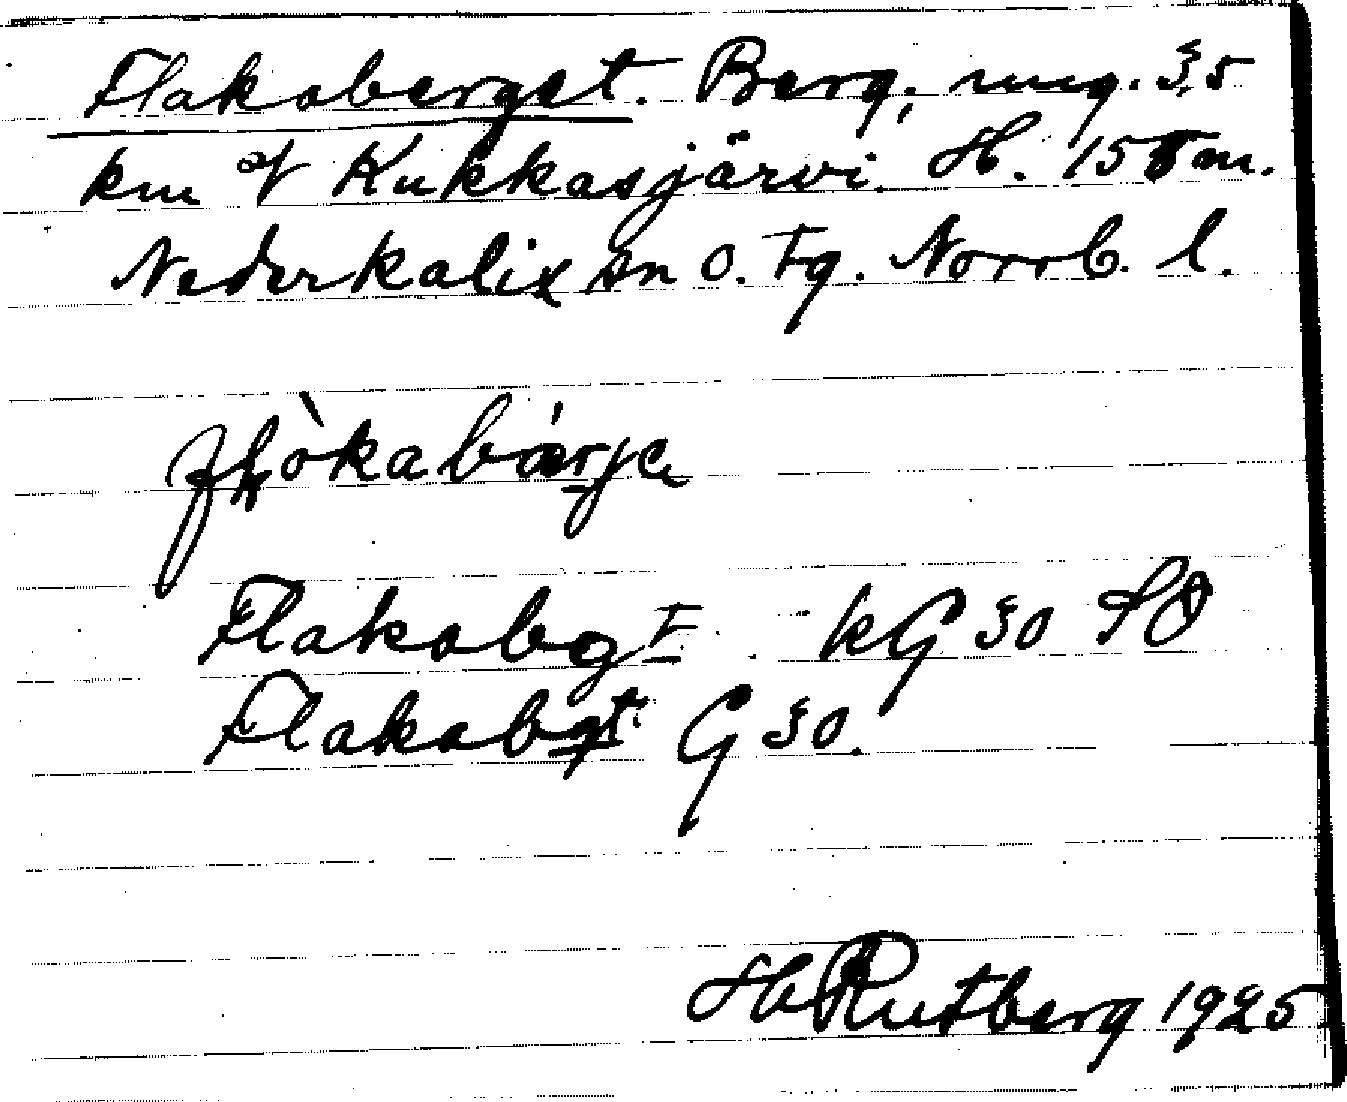 Flakaberget. Berg, ung. 3,5
km af Kukkasjärvi. H. 155 m.
Nederkalix sn o. Tg. Norrb. l.
flòkabárje
Flakabg I kG 30 SO
Flakabgt G 30.
H Rutberg 1925